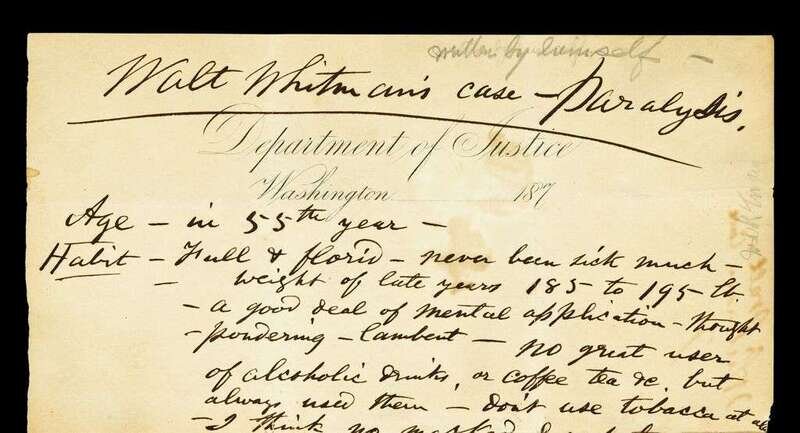 written by himself —
Walt Whitman's case — Paralysis.
Department of Justice
Washington 187
Age — in 55th year —
Habit — Full & florid — never been sick much —
— weight of late years 185 to 195 lb.
— a good deal of mental application — thought
— pondering — lambent — no great user
of alcoholic drinks, or coffee tea &c. but
always used them — don't use tobacco at
— I think no marked